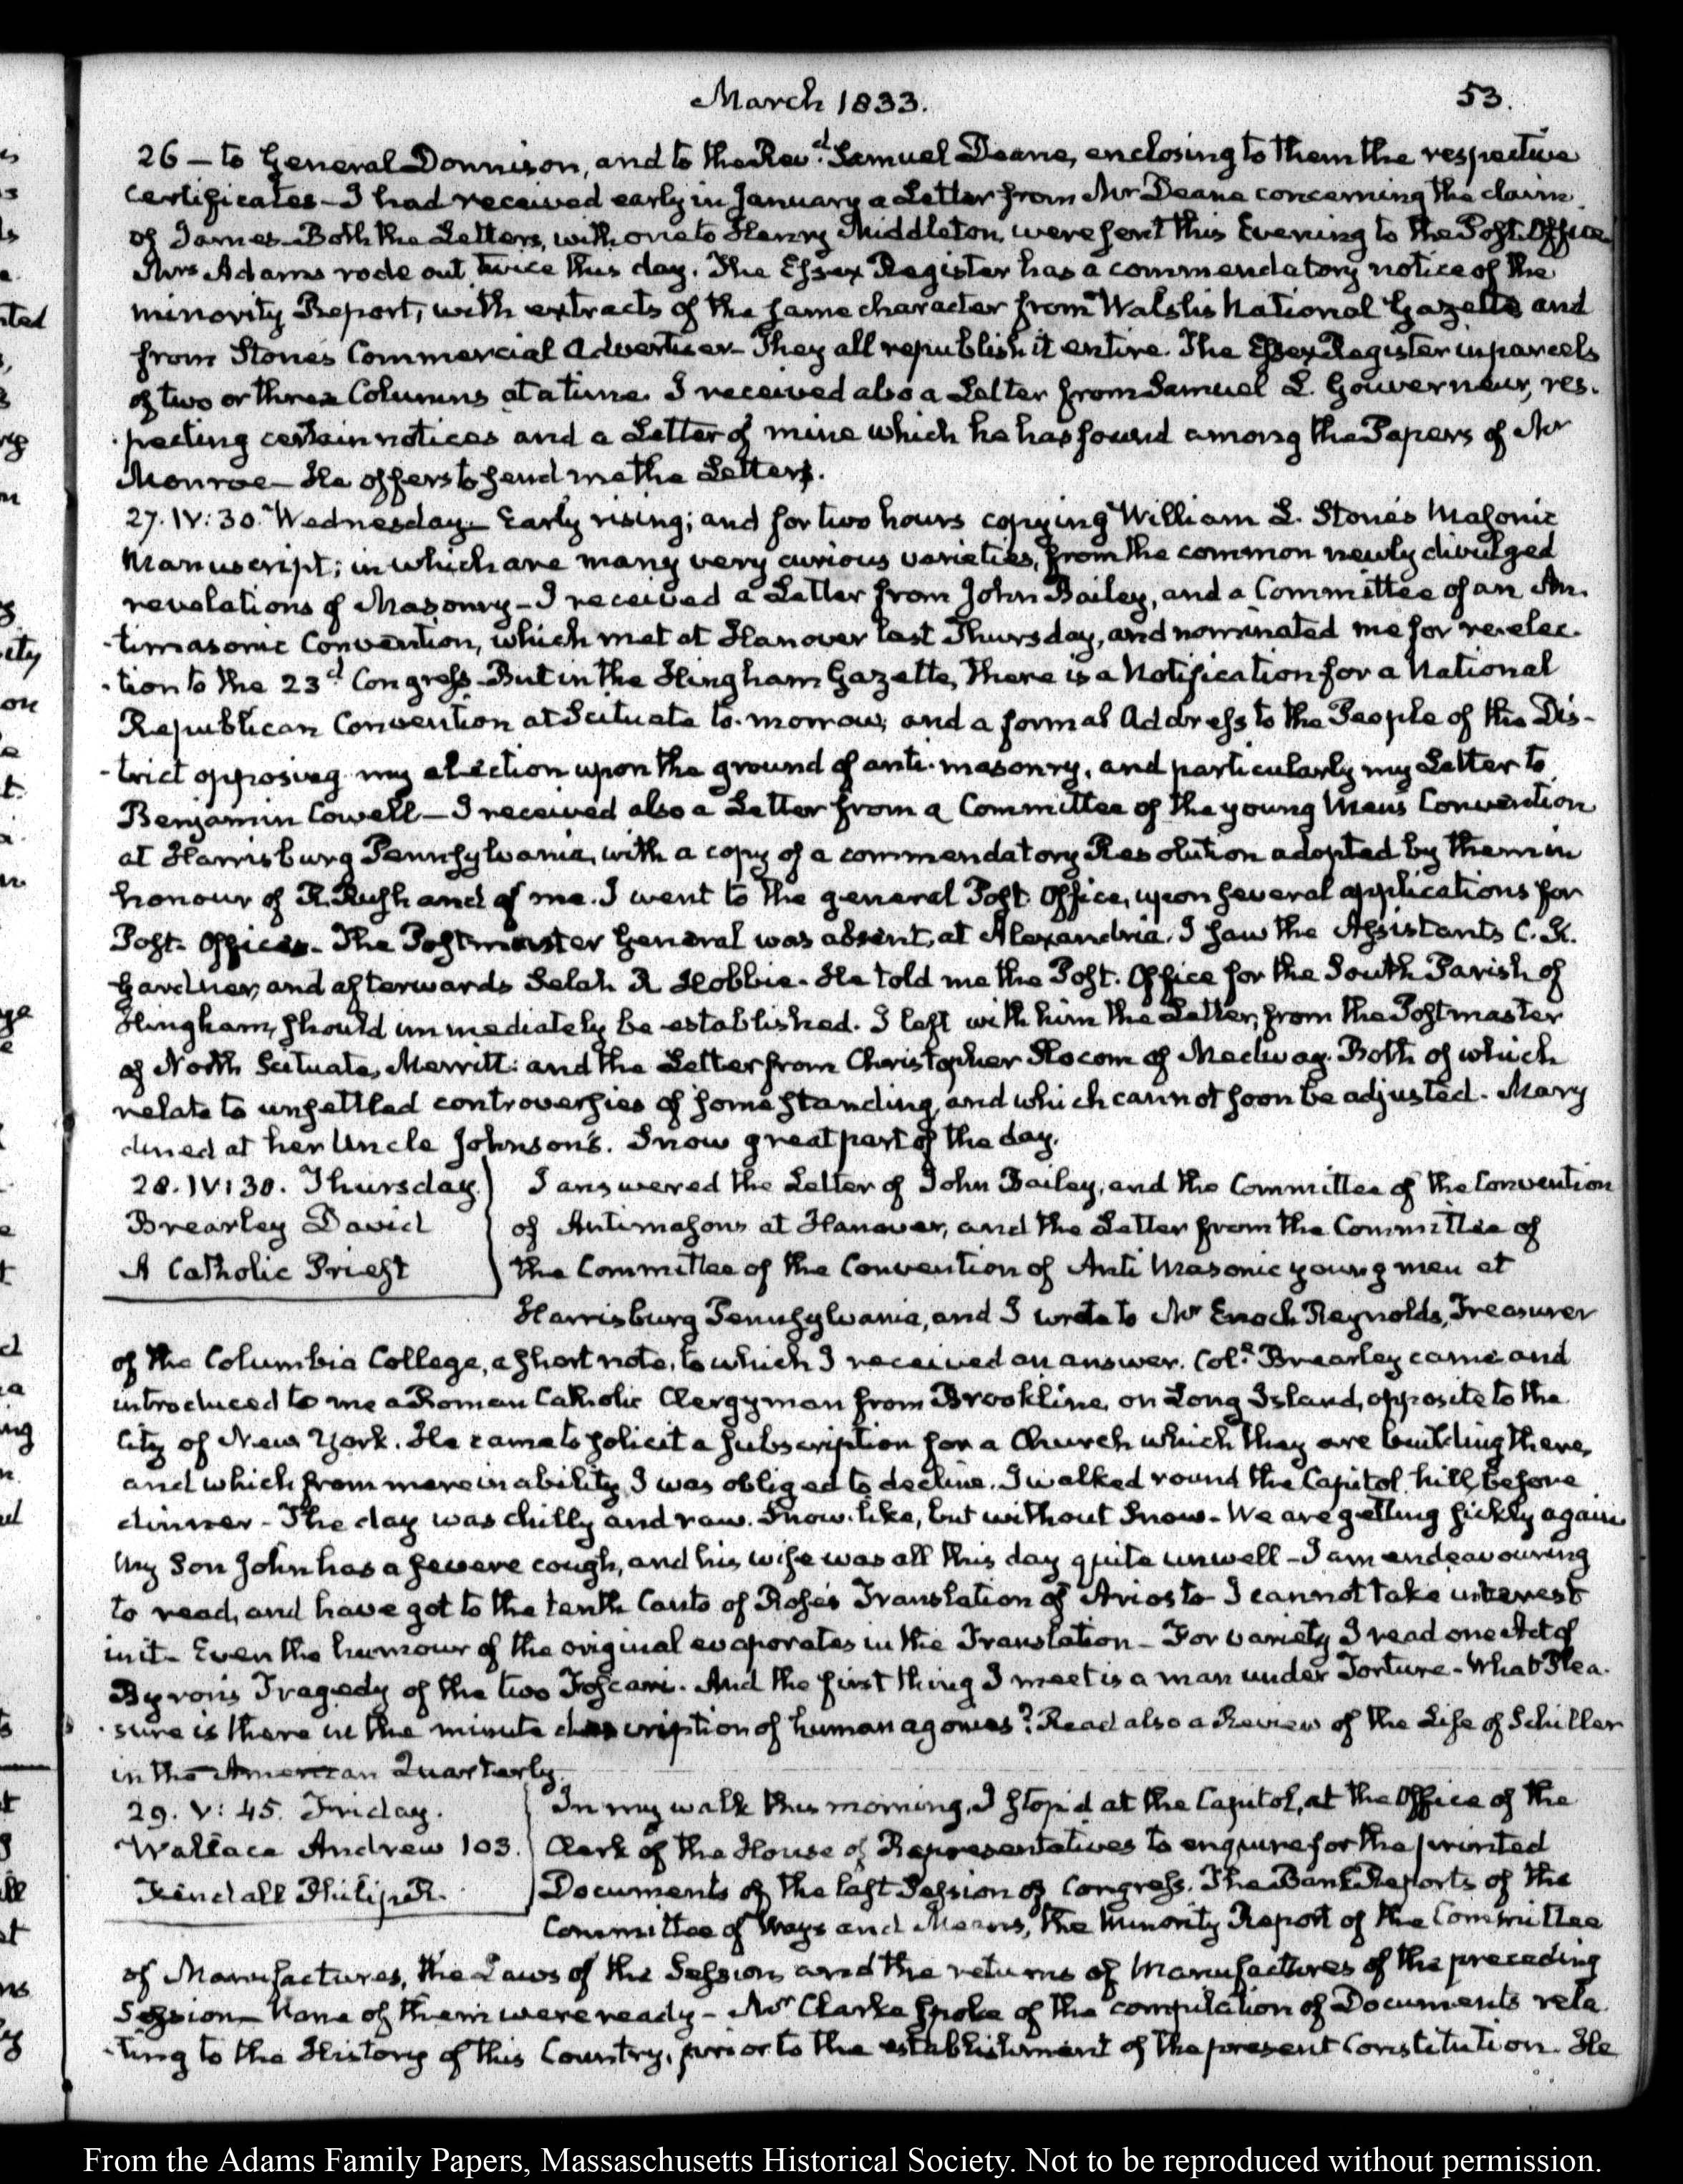 March 1833.
53.
26 — to General Donnison, and to the Rev.d Samuel Deane, enclosing to them the respective
certificates — I had received early in January a Letter from Mr Deane concerning the claim
of James — Both the Letters, with one to Henry Middleton, were sent this Evening to the Post-Office.
Mrs Adams rode out twice this day. The Essex Register has a commendatory notice of the
minority Report, with extracts of the same character from Walsh's National Gazette and
from Stone's Commercial Advertiser — They all republish it entire. The Essex Register in parcels
of two or three Columns at a time. I received also a Letter from Samuel L. Gouverneur, res-
-pecting certain notices and a Letter of mine which he has found among the Papers of Mr
Monroe — He offers to send me the Letters.
27. IV:30. Wednesday — Early rising; and for two hours copying William L. Stone's Masonic
Manuscript; in which are many very curious varieties, from the common newly divulged
revelations of Masonry — I received a Letter from John Bailey, and a Committee of an An-
-timasonic Convention, which met at Hanover last Thursday, and nominated me for re-elec-
-tion to the 23d Congress — But in the Hingham Gazette, there is a Notification for a National
Republican Convention at Scituate to-morrow, and a formal Address to the People of the Dis-
-trict opposing my election upon the ground of anti-masonry, and particularly my Letter to
Benjamin Cowell — I received also a Letter from a Committee of the young Men's Convention
at Harrisburg Pennsylvania, with a copy of a commendatory Resolution adopted by them in
honour of R. Rush and of me. I went to the general Post Office, upon several applications for
Post-Offices — The Postmaster General was absent, at Alexandria. I saw the Assistants C. K.
Gardner, and afterwards Selah R Hobbie — He told me the Post-Office for the South Parish of
Hingham, should immediately be established. I left with him the Letter, from the Postmaster
of North Scituate, Merritt: and the Letter from Christopher Slocom of Medway. Both of which
relate to unsettled controversies of some standing, and which cannot soon be adjusted — Mary
dined at her Uncle Johnson's. Snow great part of the day.
28. IV:30. Thursday.
Brearley David
A Catholic Priest
I answered the Letter of John Bailey, and the Committee of the Convention
of Antimasons at Hanover, and the Letter from the Committee of
the Committee of the Convention of Anti Masonic young men at
Harrisburg Pennsylvania, and I wrote to Mr Enoch Reynolds, Treasurer
of the Columbia College, a short note, to which I received an answer. Coll. Brearley came and
introduced to me a Roman Catholic Clergyman from Brookline, on Long Island, opposite to the
City of New York. He came to solicit a subscription for a Church which they are building there,
and which from mere inability I was obliged to decline. I walked round the Capitol hill, before
dinner — The day was chilly and raw. Snow-like, but without Snow — We are getting sickly again
My Son John has a severe cough, and his wife was all this day quite unwell — I am endeavouring
to read, and have got to the tenth Canto of Rose's Translation of Ariosto — I cannot take interest
in it — Even the humour of the original evaporates in the Translation — For variety I read one Act of
Byron's Tragedy of the two Foscari. And the first thing I meet is a man under Torture — What Plea-
-sure is there in the minute description of human agonies? Read also a Review of the Life of Schiller
in the American Quarterly.
29. V:45. Friday.
Wallace Andrew 103.
Fendall Philip R.
In my walk this morning, I stop'd at the Capitol, at the Office of the
Clerk of the House of Representatives to enquire for the printed
Documents of the last Session of Congress. The Bank Reports of the
Committee of Ways and Means, the Minority Report of the Committee
of Manufactures, the Laws of the Session and the returns of Manufactures of the preceding
Session — None of them were ready — Mr Clarke spoke of the compilation of Documents rela-
-ting to the History of this Country, prior to the establishment of the present Constitution. He
From the Adams Family Papers, Massachusetts Historical Society. Not to be reproduced without permission.